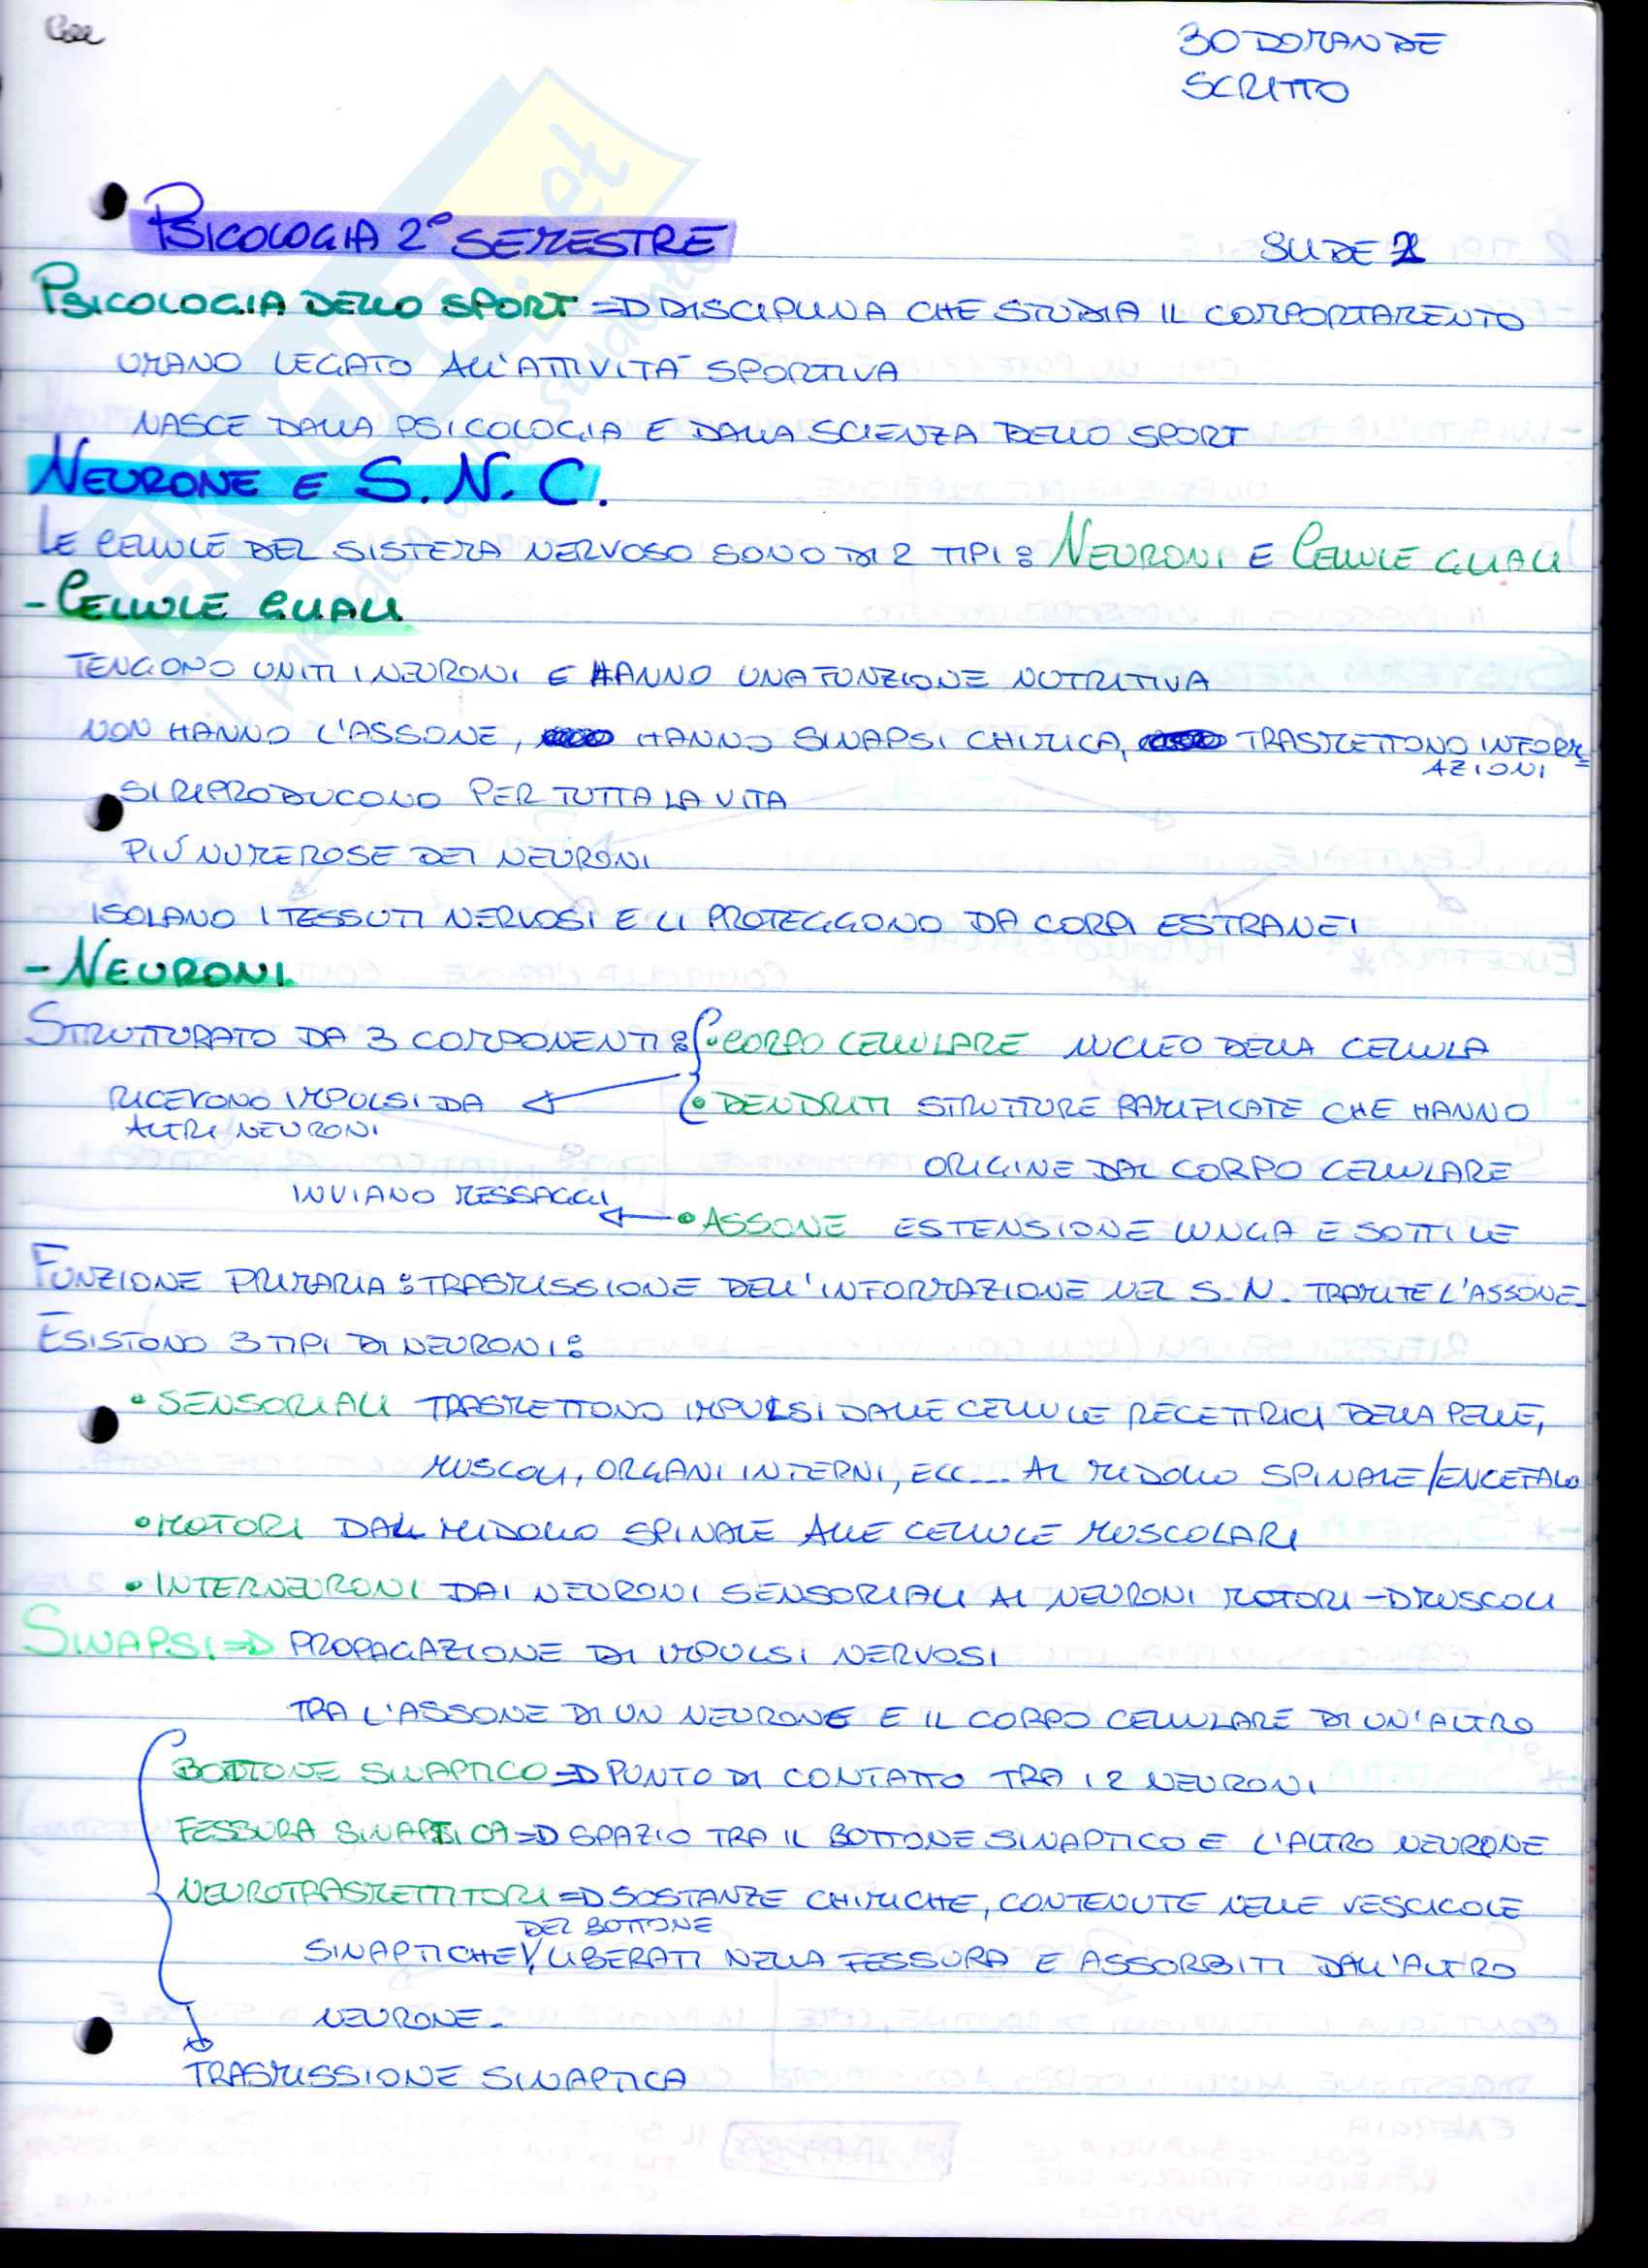 30 DOMANDE
SCRITTO
PSICOLOGIA 2° SEMESTRE
SLIDE 1
PSICOLOGIA DELLO SPORT => DISCIPLINA CHE STUDIA IL COMPORTAMENTO
UMANO LEGATO ALL'ATTIVITÀ SPORTIVA
NASCE DALLA PSICOLOGIA E DALLA SCIENZA DELLO SPORT
NEURONE E S.N.C.
LE CELLULE DEL SISTEMA NERVOSO SONO DI 2 TIPI: NEURONI E CELLULE GLIALI
- CELLULE GLIALI
TENGONO UNITI I NEURONI E HANNO UNA FUNZIONE NUTRITIVA
NON HANNO L'ASSONE, HANNO SINAPSI CHIMICA, TRASMETTONO INFORM=
AZIONI
SI RIPRODUCONO PER TUTTA LA VITA
PIÚ NUMEROSE DEI NEURONI
ISOLANO I TESSUTI NERVOSI E LI PROTEGGONO DA CORPI ESTRANEI
- NEURONI
STRUTTURATO DA 3 COMPONENTI: • CORPO CELLULARE NUCLEO DELLA CELLULA
RICEVONO IMPULSI DA
ALTRI NEURONI
• DENDRITI STRUTTURE RAMIFICATE CHE HANNO
ORIGINE DAL CORPO CELLULARE
INVIANO MESSAGGI
• ASSONE ESTENSIONE LUNGA E SOTTILE
FUNZIONE PRIMARIA: TRASMISSIONE DELL'INFORMAZIONE NEL S.N. TRAMITE L'ASSONE.
ESISTONO 3 TIPI DI NEURONI:
• SENSORIALI TRASMETTONO IMPULSI DALLE CELLULE RECETTRICI DELLA PELLE,
MUSCOLI, ORGANI INTERNI, ECC... AL MIDOLLO SPINALE/ENCEFALO
• MOTORI DAL MIDOLLO SPINALE ALLE CELLULE MUSCOLARI
• INTERNEURONI DAI NEURONI SENSORIALI AI NEURONI MOTORI -> MUSCOLI
SINAPSI => PROPAGAZIONE DI IMPULSI NERVOSI
TRA L'ASSONE DI UN NEURONE E IL CORPO CELLULARE DI UN'ALTRO
BOTTONE SINAPTICO => PUNTO DI CONTATTO TRA I 2 NEURONI
FESSURA SINAPTICA => SPAZIO TRA IL BOTTONE SINAPTICO E L'ALTRO NEURONE
NEUROTRASMETTITORI => SOSTANZE CHIMICHE, CONTENUTE NELLE VESCICOLE
DEL BOTTONE
SINAPTICHE, LIBERATI NELLA FESSURA E ASSORBITI DALL'ALTRO
NEURONE.
TRASMISSIONE SINAPTICA